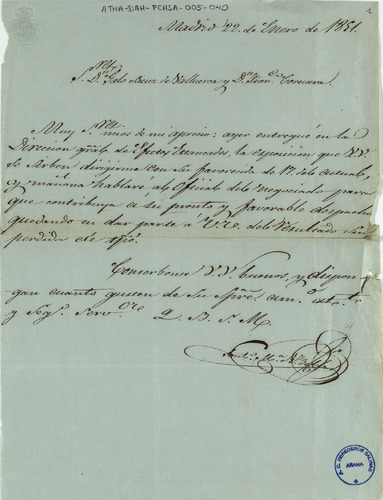 ATHA-DAH-FCHSA-005-040
1
Madrid 22 de Enero de 1851.
S.res D.n de Villuerca y D.n Fran.co
Muy S.res mios de mi aprecio: ayer entregué en la
Direccion gral de Efectos Estancados, la esposicion que VV.
se sirben dirigirme con su favorecida de 17 del actual,
y mañana hablaré al Oficial del negociado para
que contribuya a su pronto y favorable despacho
quedando en dar parte á V.res del resultado sin
perdida de
Conserbense VV. buenos, y dispon-
gan cuanto gusten de su
y Seg.o Serv.or Q. B. S. M.
A.C. HEREDEROS SALINAS
ARAÑA